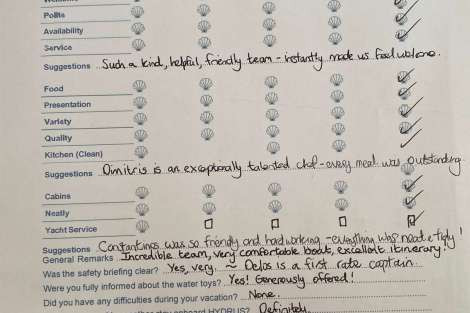 Polite
Availability
Service
Suggestions Such a kind, helpful, friendly team - instantly made us feel welcome.
Food
Presentation
Variety
Quality
Kitchen (Clean)
Suggestions Dimitris is an exceptionally talented chef - every meal was outstanding.
Cabins
Neatly
Yacht Service
Suggestions Contantinos was so friendly and hardworking - everything was neat & tidy!
General Remarks Incredible team, very comfortable boat, excellent itinerary!
Was the safety briefing clear? Yes, very. ~ Delos is a first rate captain.
Were you fully informed about the water toys? Yes! Generously offered!
Did you have any difficulties during your vacation? None.
onboard HYDRUS? Definitely